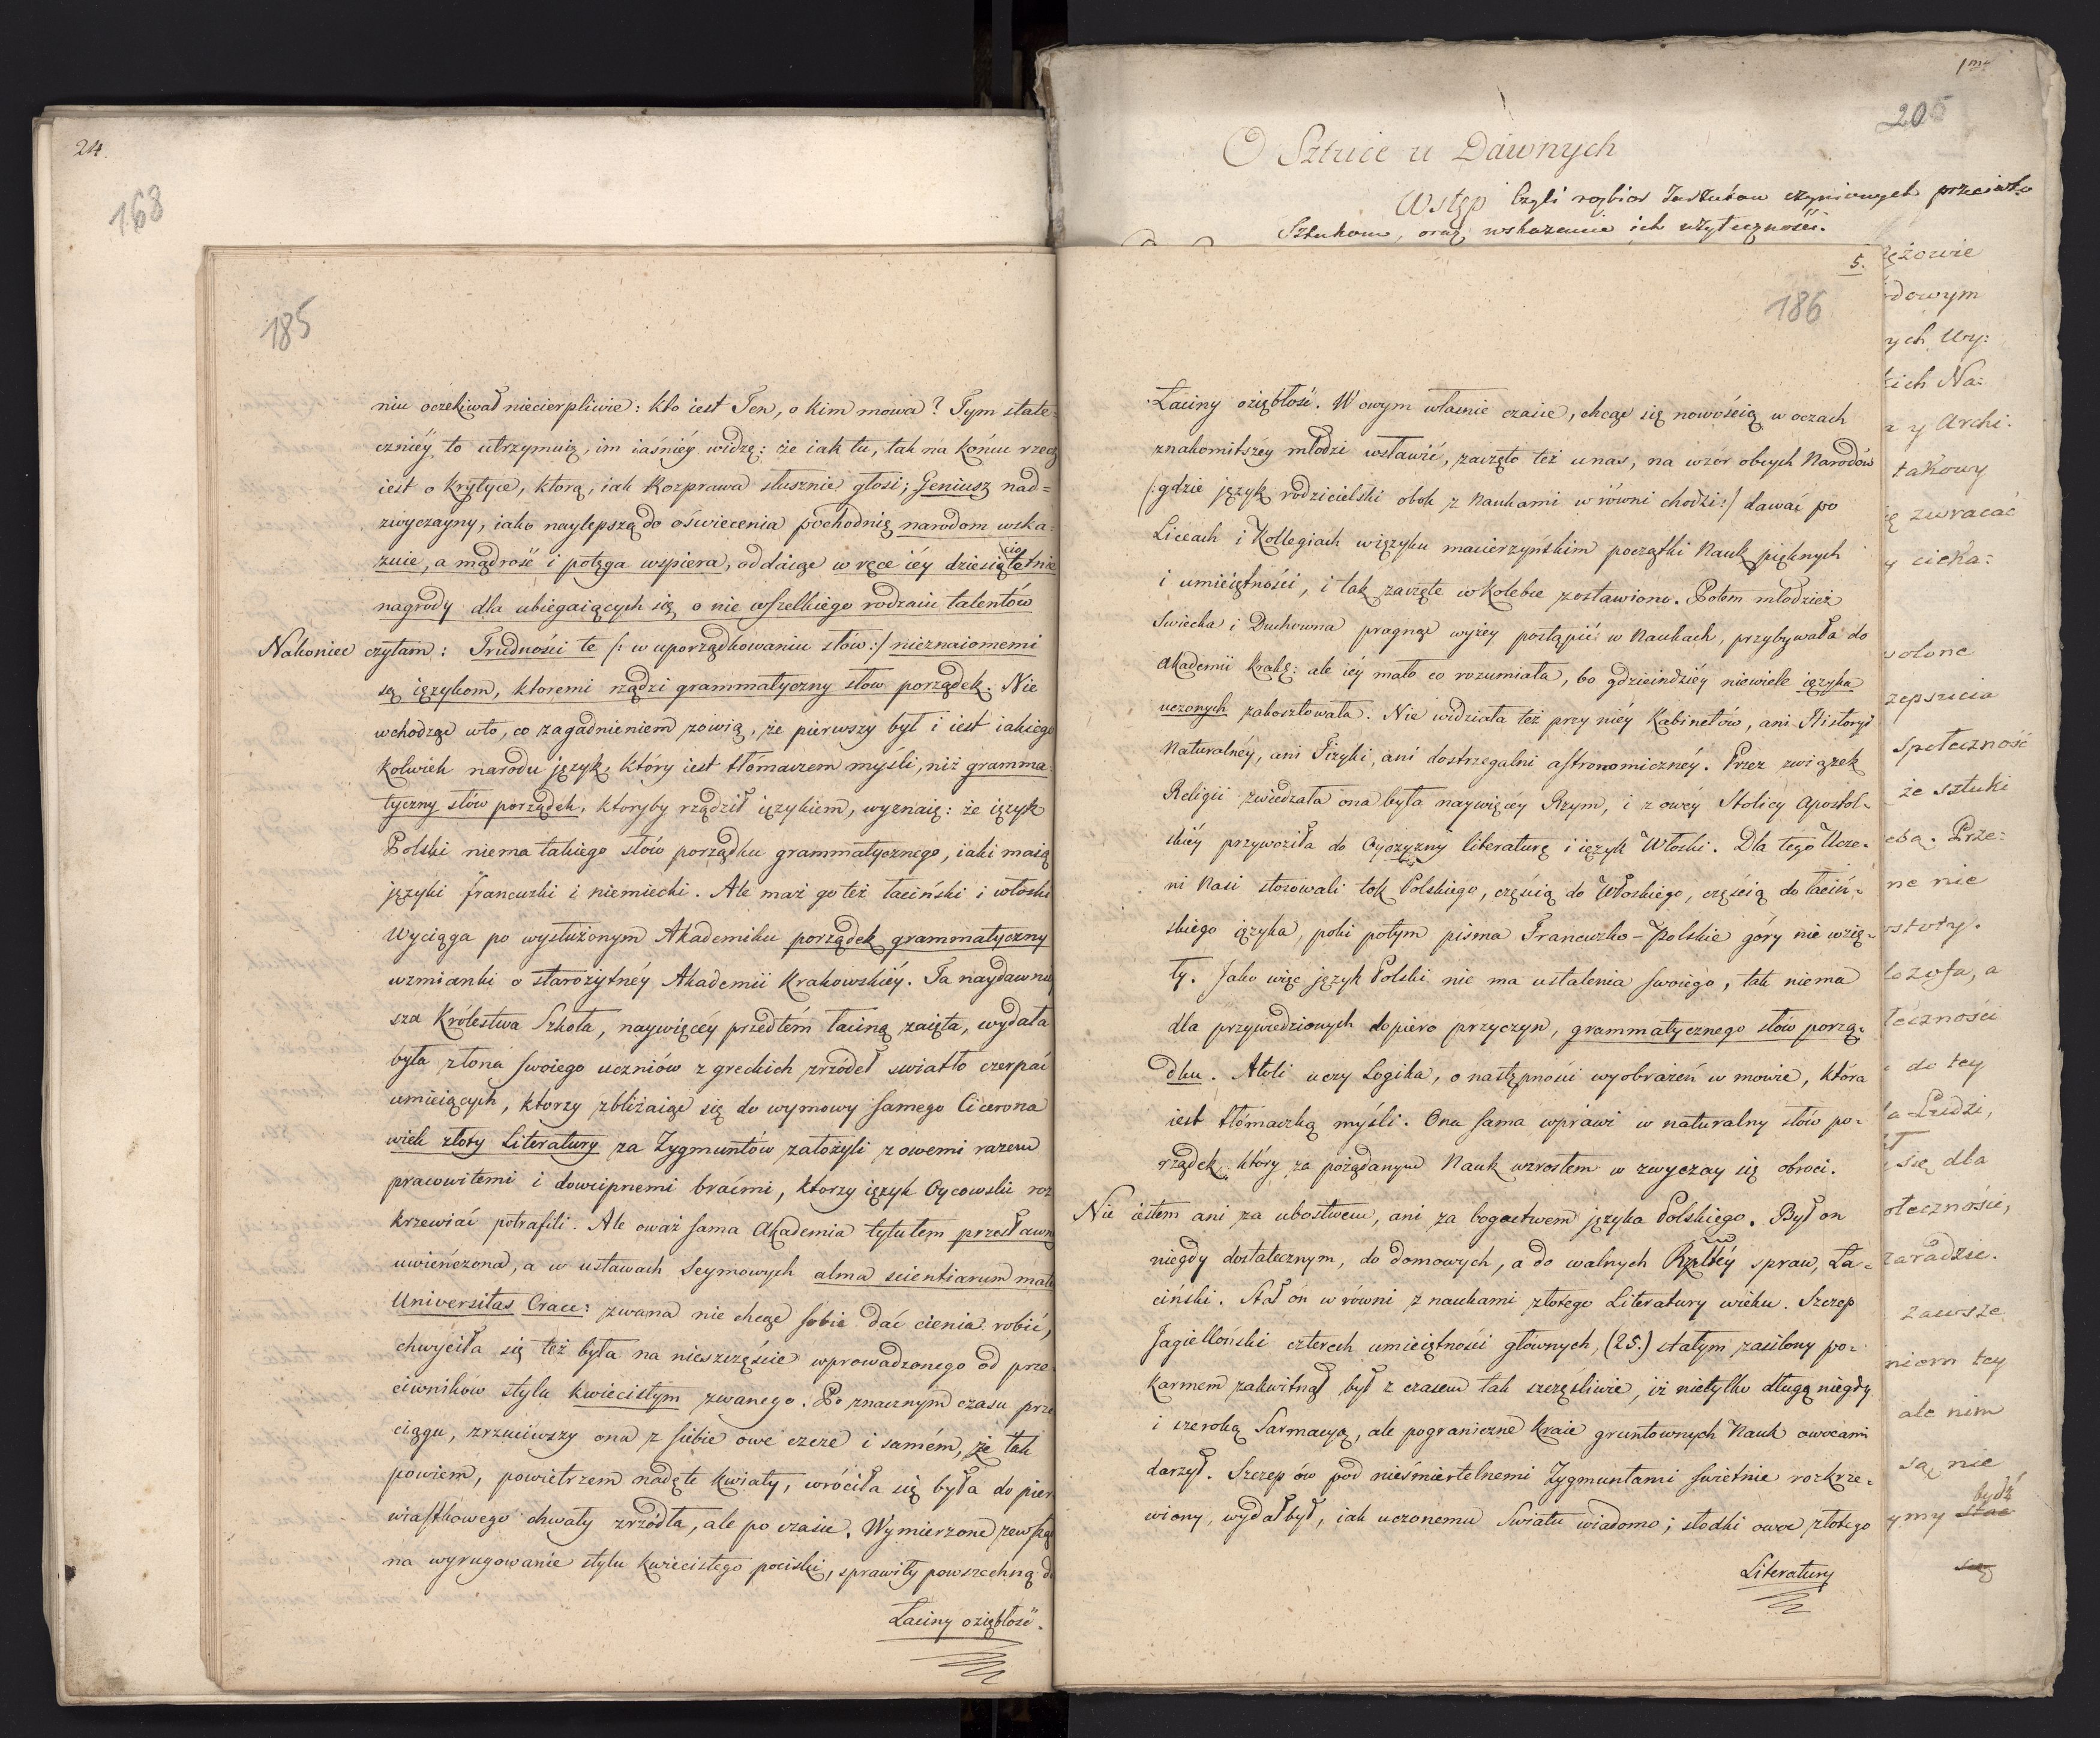 24.
168
185
niu oczekiwał niecierpliwie: kto iest Ten, o kim mowa? Tym state=
czniéy to utrzymuię, im iaśniéy widzę: że iak tu, tak na końcu rzecz
iest o krytyce, ktorą, iak Rozprawa słusznie głosi; Geniusz nad=
zwyczayny, iako naylepszą do oświecenia pochodnią narodom wska=
zuie, a mądrość i potęga wspiera, oddaiąc w ręce iéy dziesięcioletnie
nagrody dla ubiegaiących się o nie wszelkiego rodzaiu talentów
Nakoniec czytam: Trudności te /: w uporządkowaniu słów:/ nieznaiomemi
są ięzykom, ktoremi rządzi grammatyczny słow porządek. Nie
wchodząc w to, co zagadnieniem zowią, że pierwszy był i iest iakiego
kolwiek narodu język, który iest tłómaczem myśli, niż gramma=
tyczny słów porządek, ktoryby rządził ięzykiem, wyznaię: że ięzyk
Polski niema takiego słów porządku grammatycznego, iaki maią
języki francuzki i niemiecki. Ale maż go też łaciński i włoski
Wyciąga po wysłużonym Akademiku porządek grammatyczny
wzmianki o starożytnéy Akademii Krakowskiéy. Ta naydawniéy
sza Królestwa Szkoła, naywięcéy przedtém łaciną zaięta, wydała
była z łona swoiego uczniów z greckich zrzódeł swiatło czerpać
umieiących, ktorzy zbliżaiąc się do wymowy samego Cicerona
wiek złoty Literatury za Zygmuntów założyli z owemi razem
pracowitemi i dowcipnemi braćmi, ktorzy ięzyk Oycowski roz
krzewiać potrafili. Ale oważ sama Akademia tytułem przesławn
uwieńczona, a w ustawach Seymowych alma scientiarum mate
Universitas Crac: zwana nie chcąc sobie dać cienia robić,
chwyciła się też była na nieszczęście wprowadzonego od prze
ciwników stylu kwiecistym zwanego. Po znacznym czasu prze
ciągu, zrzuciwszy ona z siebie owe czcze i samém, że tak
powiem, powietrzem nadęte kwiaty, wróciła się była do pier
wiastkowego chwały zrzódła, ale po czasie. Wymierzone zewsząd
na wyrugowanie stylu kwiecistego pociski, sprawiły powszechną do
Łaciny oziębłość.
1my
205
O Sztuce u Dawnych
Wstęp Czyli rozbior zarzutow czynionych przeciwko
Sztukom, oraz wskazanie ich użyteczności.
5.
186
Łaciny oziębłość. W owym własnie czasie, chcąc się nowością w oczach
znakomitszéy młodzi wsławić, zaczęto też u nas, na wzór obcych Narodów
/:gdzie język rodzicielski obok z Naukami w równi chodzi:/ dawać po
Liceach i Kollegiach w ięzyku macierzyńskim początki Nauk pięknych
i umieiętności, i tak zaczęte w kolebce zostawiono. Potem młodzież
Swiecka i Duchowna pragnąc wyżey postąpić w Naukach, przybywała do
Akademii krakẹ: ale iéy mało co rozumiała, bo gdzieindziéy niewiele ięzyka
uczonych zakosztowała. Nie widziała też przy niéy Kabinetów, ani Historyi
Naturalnéy, ani Fizyki, ani dostrzegalni astronomicznéy. Przez związek
Religii zwiedzała ona była naywięcéy Rzym, i z owéy Stolicy Apostol=
skiéy przywoziła do Oyczyzny literaturę i ięzyk Włoski. Dla tego Ucze=
ni Nasi stosowali tok Polskiego, częścią do Włoskiego, częścią do łaciń=
skiego ięzyka, poki potym pisma Francuzko-Polskie góry nie wzię=
ły. Jako więc język Polski nie ma ustalenia swoiego, tak niema
dla przywiedzionych dopiero przyczyn, grammatycznego słów porzą=
dku. Atoli uczy Logika, o następności wyobrażeń w mowie, która
iest tłómaczką myśli. Ona sama wprawi w naturalny słów po=
rządek, który za pożądanym Nauk wzrostem w zwyczay się obroci.
Nie iestem ani za ubostwem, ani za bogactwem języka Polskiego. Był on
niegdy dostatecznym, do domowych, a do walnych Rzltéy spraw, Ła=
ciński. Stał ón w równi z naukami złotego Literatury wieku. Szczep
Jagielloński czterech umieiętności głównych, (25.) stałym zasilony po=
karmem zakwitnął był z czasem tak szczęśliwie, iż nietylko długą niegdy
i szeroką Sarmacyą, ale pograniczne kraie gruntownych Nauk owocami
darzył. Szczep ów pod nieśmiertelnemi Zygmuntami świetnie rozkrze=
wiony, wydał był, iak uczonemu Swiatu wiadomo; słodki owoc złotego
Literatury
ężowie
dowym
ych Wy:
kich Na:
y Archi:
takowy
zwracać
cieka:
zepszicia
społeczność
że sztuki
Prze:
ne nie
lozofa, a
łeczności
do tey
Ludzi,
się dla
ołeczności,
zaradzić.
zawsze
niom tey
ale nim
są nie
być
ymy stać
się